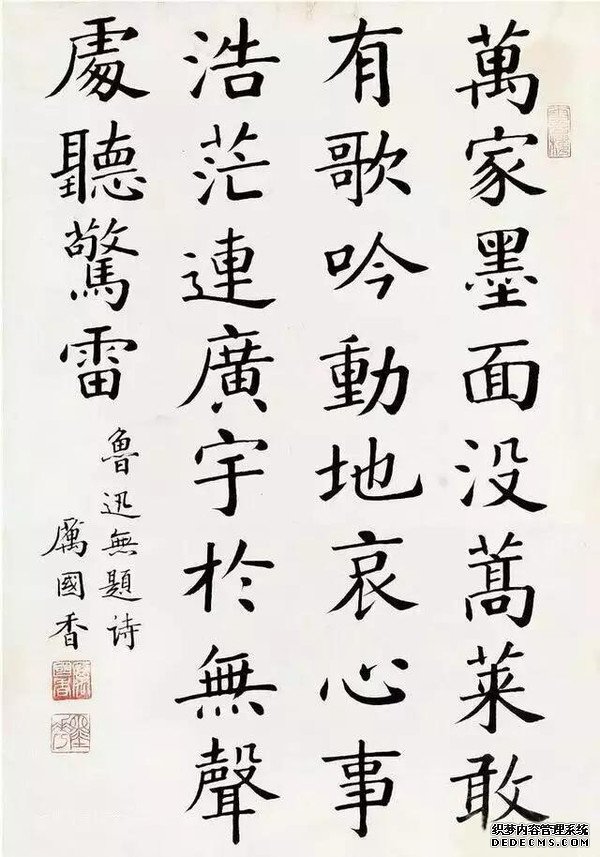 萬家墨面没蒿萊敢
有歌吟動地哀心事
浩茫連廣宇於無聲
處聽驚雷
魯迅無題诗
厲國香
织梦内容管理系统
DEDECMS.COM